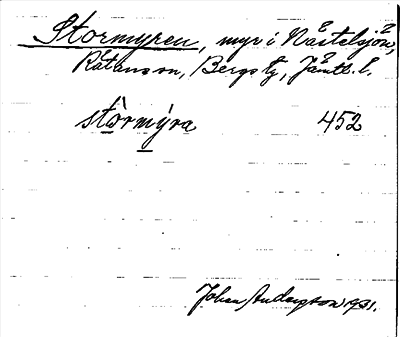 Stormyren, myr i Nästelsjön,
Rätans sn, Bergs tg, Jämtl. l.
stòrmýra 452
Johan Anderzson 1931.